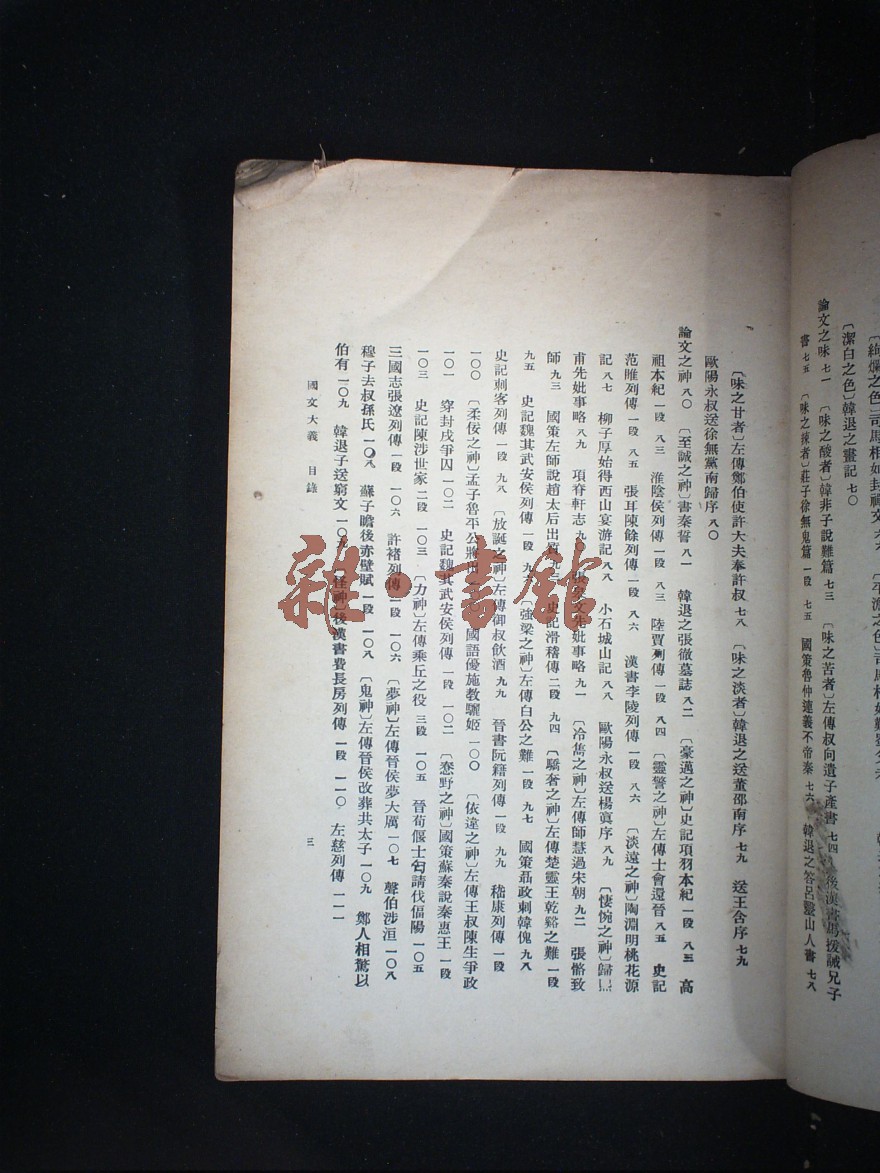 〔潔白之色〕韓退之畫記 七〇
論文之味 七一 〔味之酸者〕韓非子說難篇 七三 〔味之苦者〕左傳叔向遺子產書 七四 後漢書馬援誡兄子
書 七五 〔味之辣者〕莊子徐無鬼篇 一段 七五 國策魯仲連義不帝秦 七六 韓退之答呂毉山人書 七八
〔味之甘者〕左傳鄭伯使許大夫奉許叔 七八 〔味之淡者〕韓退之送董邵南序 七九 送王含序 七九
歐陽永叔送徐無黨南歸序 八〇
論文之神 八〇 〔至誠之神〕書秦誓 八一 韓退之張徹墓誌 八二 〔豪邁之神〕史記項羽本紀 一段 八三 高
祖本紀 一段 八三 淮陰侯列傳 一段 八三 陸賈列傳 一段 八四 〔靈警之神〕左傳士會還晉 八五 史記
范睢列傳 一段 八五 張耳陳餘列傳 一段 八六 漢書李陵列傳 一段 八六 〔淡遠之神〕陶淵明桃花源
記 八七 柳子厚始得西山宴游記 八八 小石城山記 八八 歐陽永叔送楊寘序 八九 〔悽惋之神〕歸
甫先妣事略 八九 項脊軒志 九〇 文先妣事略 九一 〔冷雋之神〕左傳師慧過宋朝 九二 張骼致
師 九三 國策左師說趙太后出質 史記滑稽傳 二段 九四 〔驕奢之神〕左傳楚靈王乾谿之難 一段
九五 史記魏其武安侯列傳 一段 〔強梁之神〕左傳白公之難 一段 九七 國策聶政刺韓傀 九八
史記刺客列傳 一段 九八 〔放誕之神〕左傳御叔飲酒 九九 晉書阮籍列傳 一段 九九 嵇康列傳 一段
一〇〇 〔柔佞之神〕孟子魯平公將出 國語優施教驪姬 一〇〇 〔依違之神〕左傳王叔陳生爭政
一〇一 穿封戌爭囚 一〇二 史記魏其武安侯列傳 一段 一〇二 〔惷野之神〕國策蘇秦說秦惠王 一段
一〇三 史記陳涉世家 二段 一〇三 〔力神〕左傳乘丘之役 三段 一〇五 晉荀偃士匄請伐偪陽 一〇五
三國志張遼列傳 一段 一〇六 許褚列傳 一段 一〇六 〔夢神〕左傳晉侯夢大厲 一〇七 聲伯涉洹 一〇八
穆子去叔孫氏 一〇八 蘇子瞻後赤壁賦 一段 一〇八 〔鬼神〕左傳晉侯改葬共太子 一〇九 鄭人相驚以
伯有 一〇九 韓退子送窮文 一〇九 〔怪神〕後漢書費長房列傳 一段 一一〇 左慈列傳 一一一
國文大義 目錄
三
雜·書館